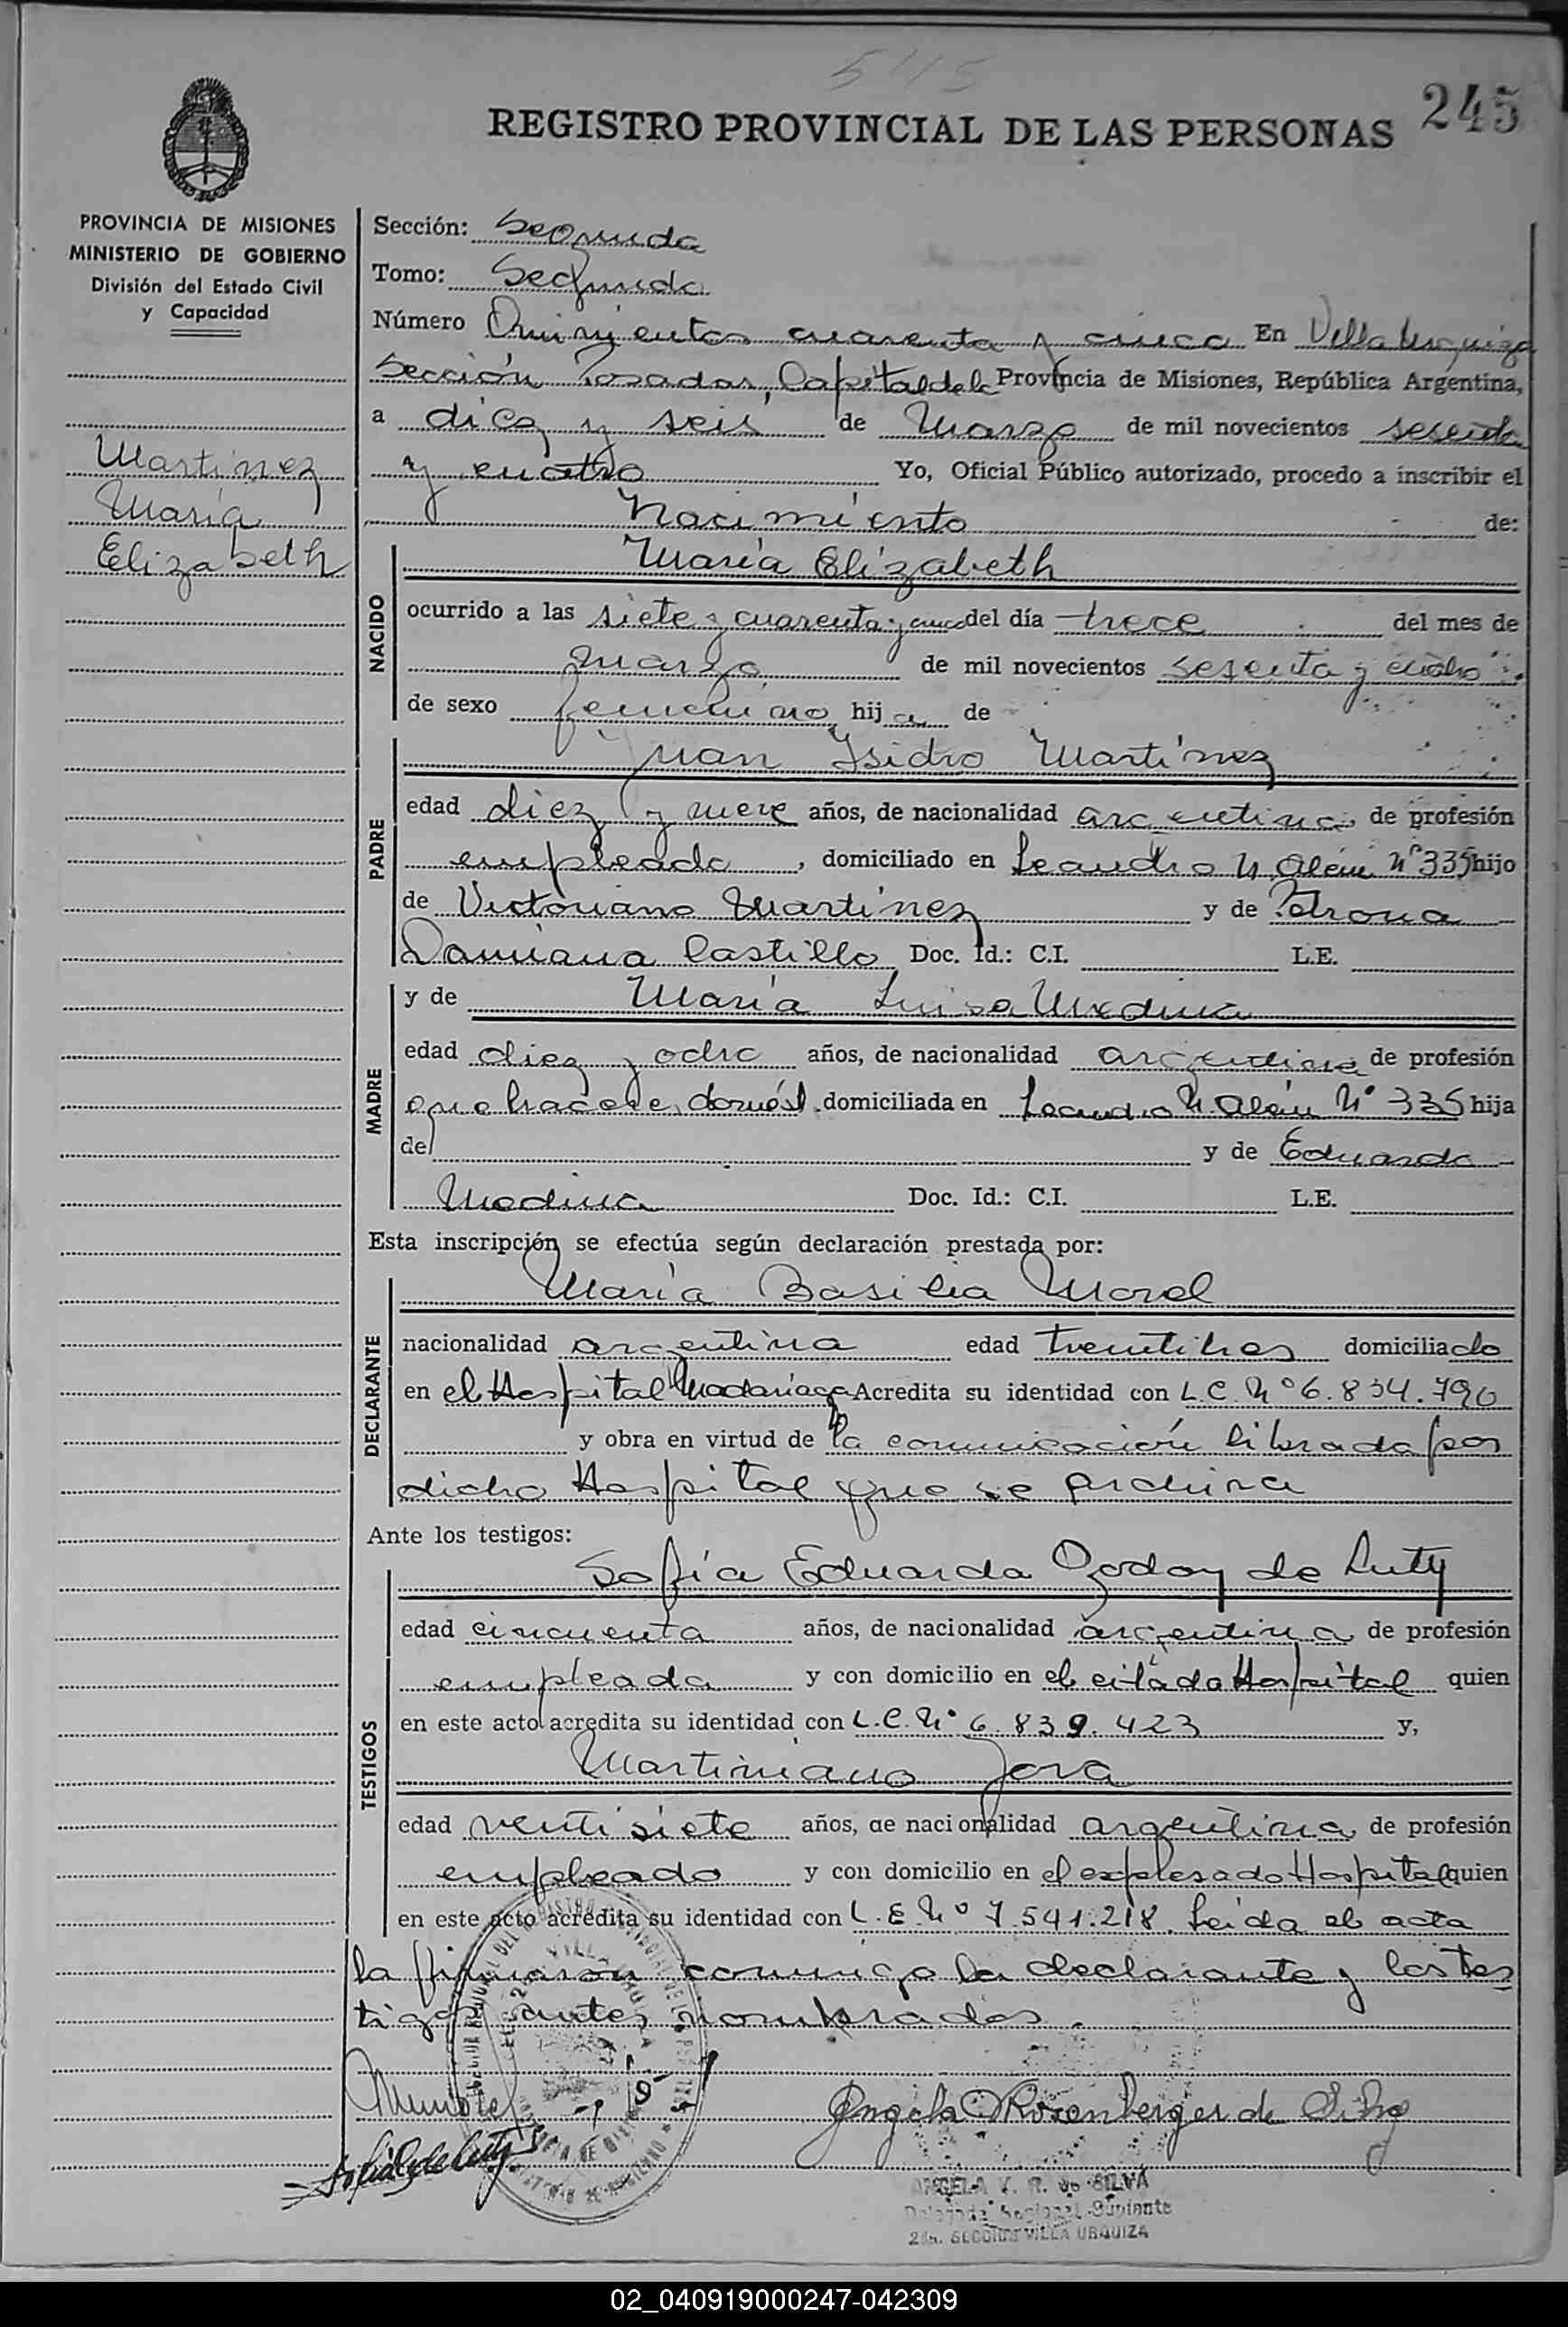 545
REGISTRO PROVINCIAL DE LAS PERSONAS 245
PROVINCIA DE MISIONES
MINISTERIO DE GOBIERNO
División del Estado Civil
y Capacidad
Martínez
María
Elizabeth
Sección: Segunda
Tomo: Segundo
Número Quinientos cuarenta y cinco En Villa Urquiza
Sección Posadas, Capital de la Provincia de Misiones, República Argentina,
a diez y seis de Marzo de mil novecientos sesenta
y cuatro Yo, Oficial Público autorizado, procedo a inscribir el
Nacimiento de:
NACIDO
María Elizabeth
ocurrido a las siete y cuarenta y cinco del día trece del mes de
marzo de mil novecientos sesenta y cuatro
de sexo femenino hija de
PADRE
Juan Isidro Martínez
edad diez y nueve años, de nacionalidad argentina de profesión
empleado, domiciliado en Leandro N. Além Nº 335 hijo
de Victoriano Martínez y de Petrona
Damiana Castillo Doc. Id.: C.I. L.E.
MADRE
y de María Luisa Medina
edad diez y ocho años, de nacionalidad argentina de profesión
quehaceres domést. domiciliada en Leandro N. Além Nº 335 hija
de y de Eduarda
Medina Doc. Id.: C.I. L.E.
Esta inscripción se efectúa según declaración prestada por:
DECLARANTE
María Basilia Morel
nacionalidad argentina edad treintitres domiciliado
en el Hospital Madariaga Acredita su identidad con L.C. Nº 6.834.790
y obra en virtud de la comunicación librada por
dicho Hospital que se archiva
Ante los testigos:
TESTIGOS
Sofía Eduarda Godoy de Luty
edad cincuenta años, de nacionalidad argentina de profesión
empleada y con domicilio en el citado Hospital quien
en este acto acredita su identidad con L.C. Nº 6.839.423 y,
Martiniano Jara
edad ventisiete años, de nacionalidad argentina de profesión
empleado y con domicilio en el expresado Hospital quien
en este acto acredita su identidad con L.E. Nº 7.541.218. Leída el acta
la firmaron conmigo la declarante y los tes
tigos antes nombrados.
Angela Rosenberger de Silva
ANGELA V. R. de SILVA
Delegada Seccional Suplente
2da. SECCION VILLA URQUIZA
02_040919000247-042309